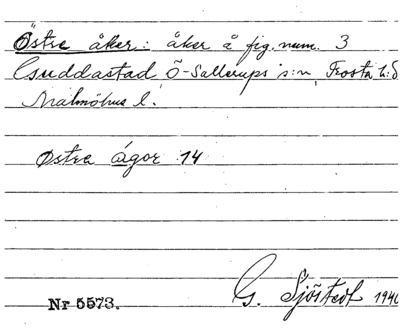 Östre åker: åker å fig. num. 3
Guddastad Ö-Sallerups s:n, Frosta h:d
Malmöhus l.
Østre ágor 14
G. Sjöstedt 1940
Nr 5573.